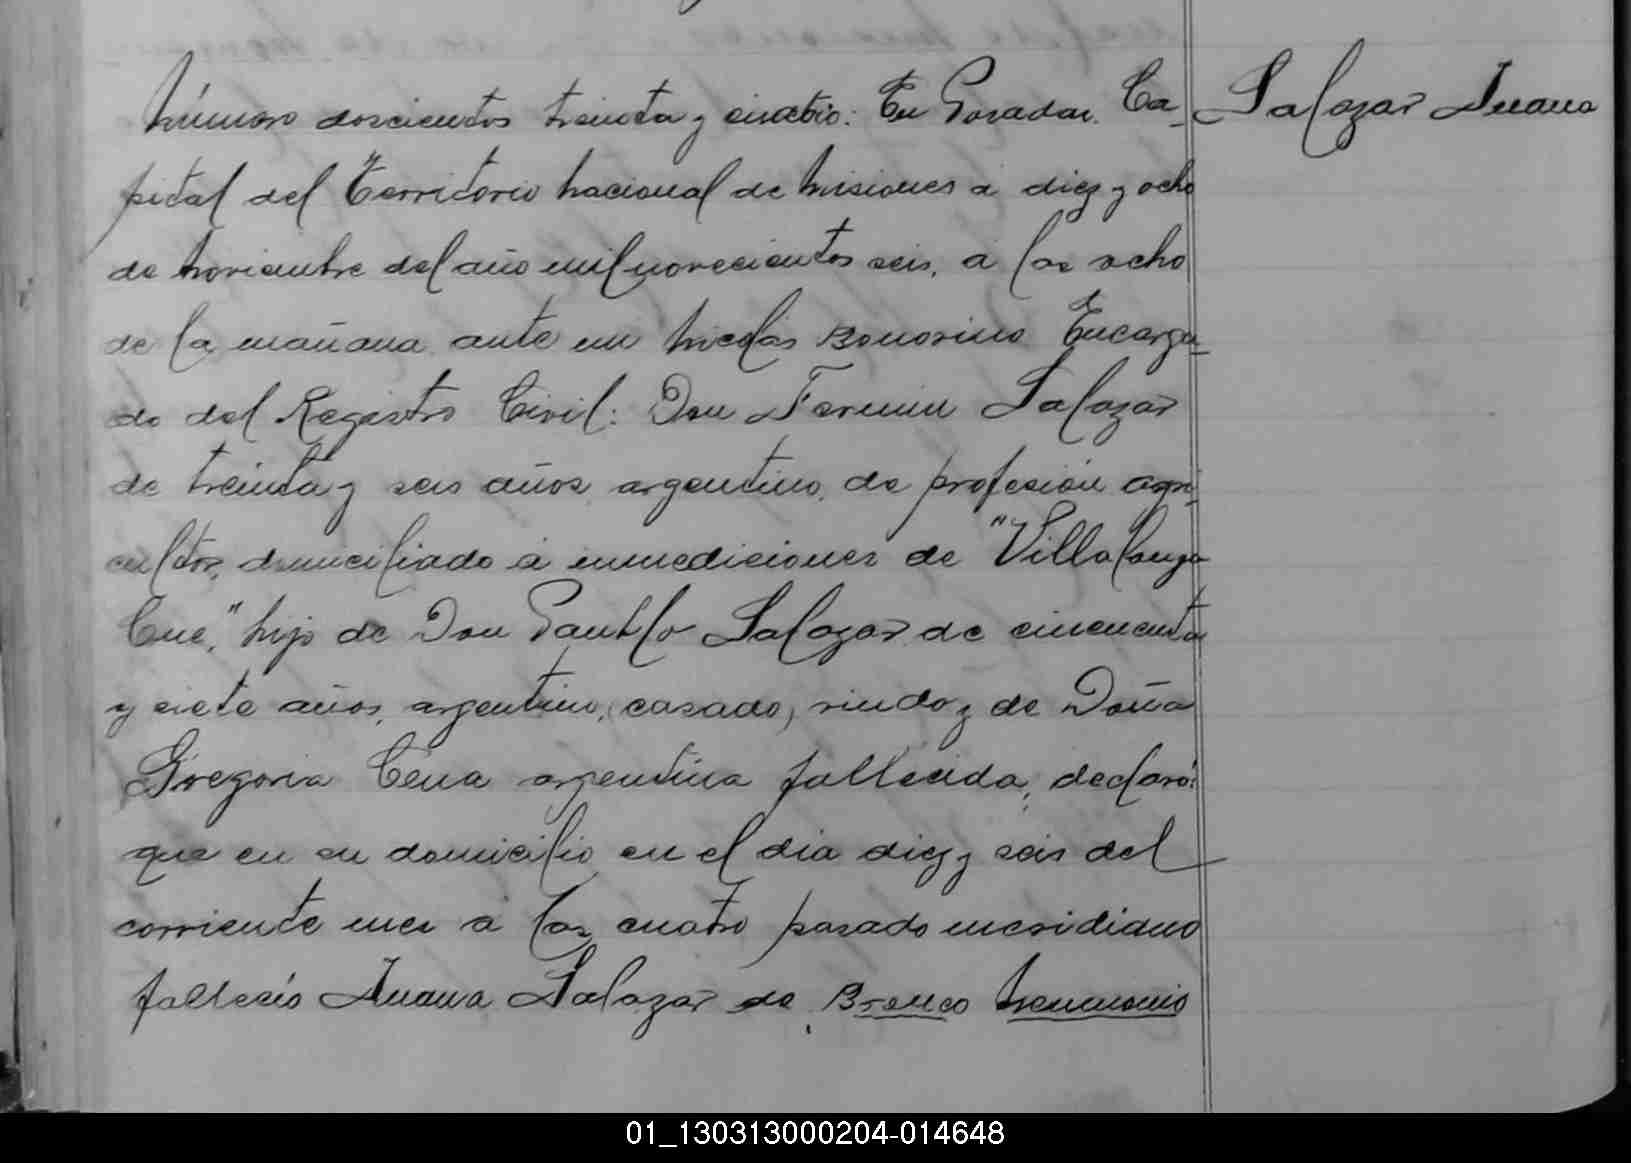 Número doscientos treinta y cuatro: En Posadas, Ca_ Salazar Juana
pital del Territorio Nacional de Misiones á diez y ocho
de Noviembre del año mil novecientos seis, á las ocho
de la mañana ante mi Nicolás Bonorino Encarga_
do del Registro Civil: Don Fermin Salazar
de treinta y seis años, argentino, de profesión agri_
cultor, domiciliado á inmediciones de "Villalonga
Cué," hijo de Don Pantlo Salazar de cincuenta
y siete años, argentino, (casado) viudo y de Doña
Gregoria Cena argentina fallecida; declaró:
que en su domicilio en el dia diez y seis del
corriente mes á las cuatro pasado meridiano
falleció Juana Salazar de Bronco
01_130313000204-014648